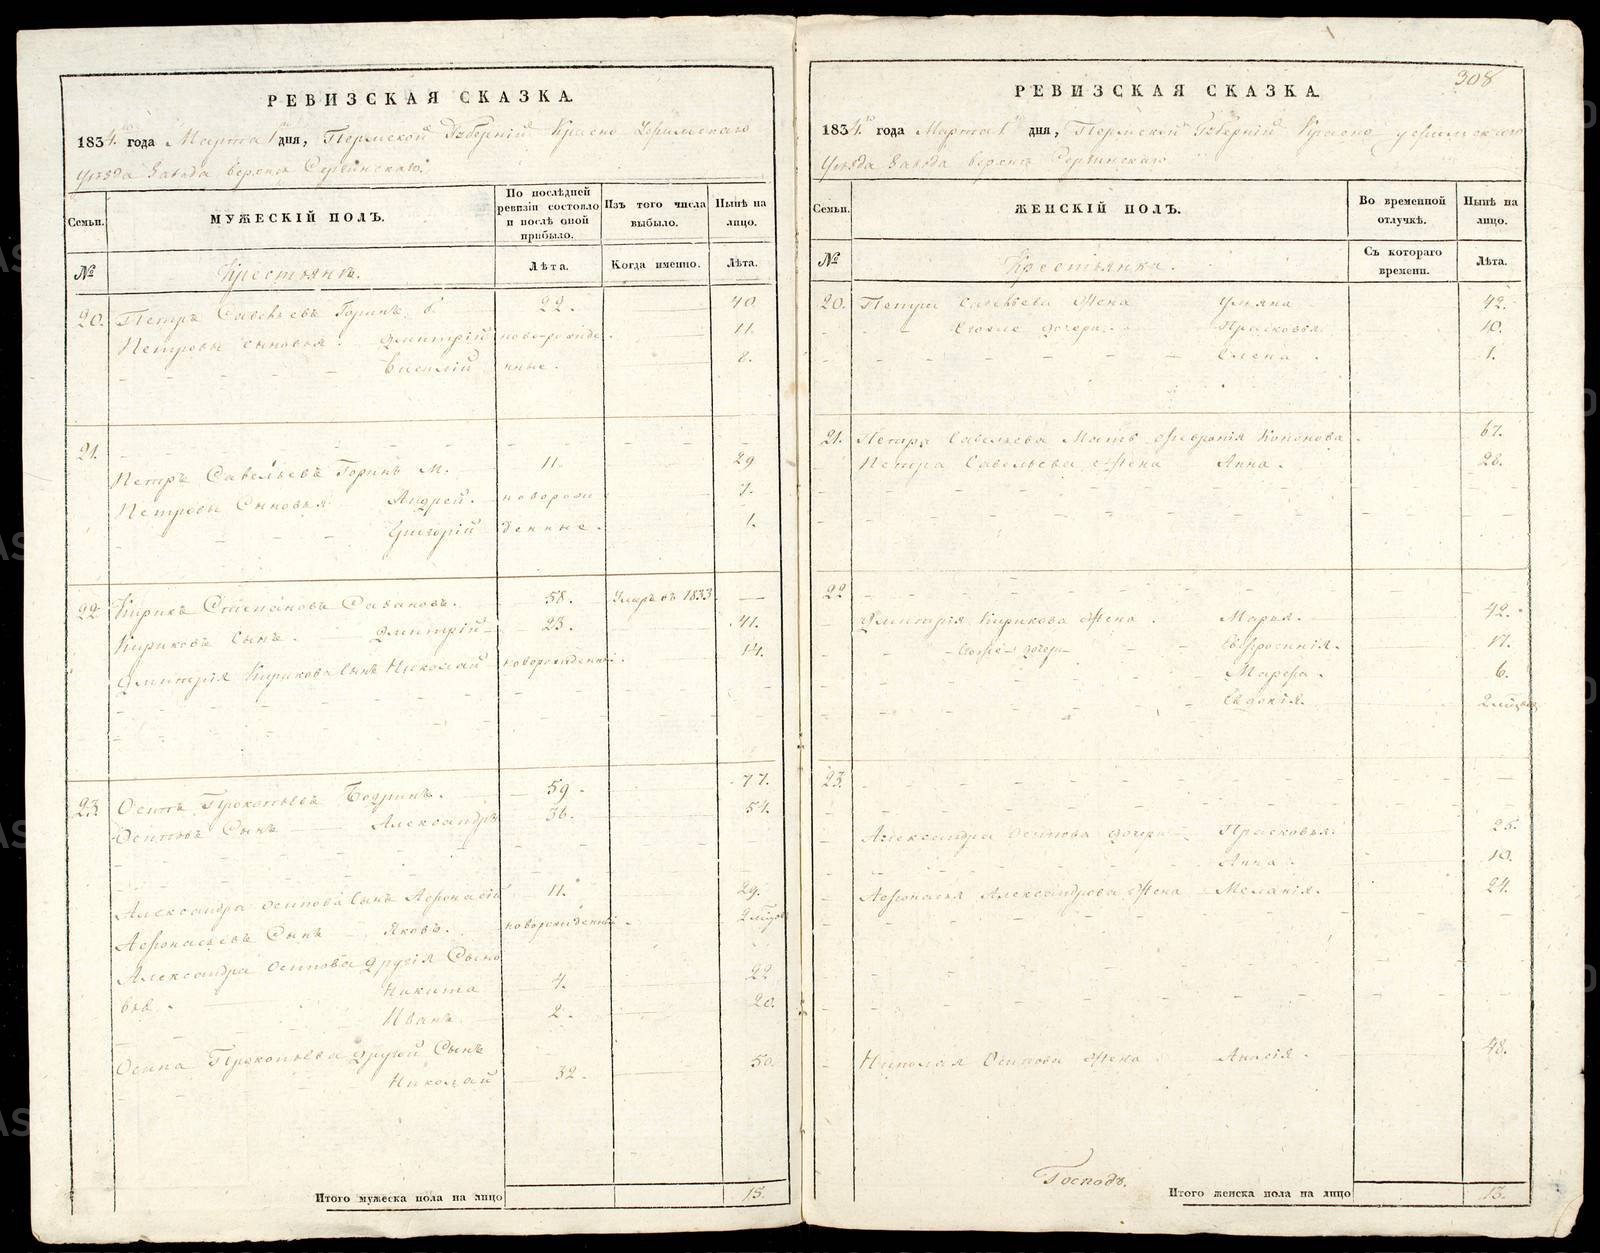 РЕВИЗСКАЯ СКАЗКА.
1834го года Марта 1 дня, Пермской Губерніи Красно Уфимскаго
уѣзда Завода верхнь Сергинскаго.
Семьи.
МУЖЕСКІЙ ПОЛЪ.
По послѣдней ревизіи состояло и послѣ оной прибыло.
Изъ того числа выбыло.
Нынѣ на лицо.
№
Крестьянъ.
Лѣта.
Когда именно.
Лѣта.
20. Петръ Савельевъ Горинъ б. 22. 40
Петровы сыновья. Дмитрій новорожде 11.
Василій нные. 8.
21.
Петръ Савельевъ Горинъ м. 11. 29
Петровы Сыновья Андрей. новорож 7.
Григорій денные. 1.
22. Кирикъ Степановъ Савановъ. 58. Умеръ въ 1833 —
Кириковъ Сынъ. Дмитрій 23. 41.
Дмитрія Кирикова Сынъ Николай новорожденный. 14.
23. Осипъ Прокопьевъ Бодринъ. 59. 77.
Осиповъ Сынъ Александръ 36. 54.
Александра Осипова Сынъ Афонасій 11. 29.
Афонасьевъ Сынъ Яковъ. новорожденный. 2 мѣсяц
Александра Осипова Другія Сыно
вья. Никита 4. 22
Иванъ 2. 20.
Осипа Прокопьева другой Сынъ
Николай 32. 50.
Итого мужеска пола на лицо 15.
308
РЕВИЗСКАЯ СКАЗКА.
1834го года Марта 1 дня, Пермской Губерніи Красно уфимскаго
Уѣзда Завода верхнь Сергинскаго
Семьи.
ЖЕНСКІЙ ПОЛЪ.
Во временной отлучкѣ.
Нынѣ на лицо.
№
Крестьянка.
Съ котораго времени.
Лѣта.
20. Петра Савельева Жена Ульяна 42.
Егожъ дочери. Прасковья. 10.
Елена. 1.
21. Петра Савельева Мать Февронія Кононова. 67.
Петра Савельева Жена Анна. 28.
22
Дмитрія Кирикова Жена. Марья. 42.
Егожъ дочери Евфросинія. 17.
Марфа. 6.
Евдокія. 2 мѣсяц
23.
Александра Осипова дочери Прасковья. 25.
Анна. 10.
Афонасія Александрова Жена Меланія. 24.
Николая Осипова Жена Анисія. 48.
Господъ.
Итого женска пола на лицо 13.